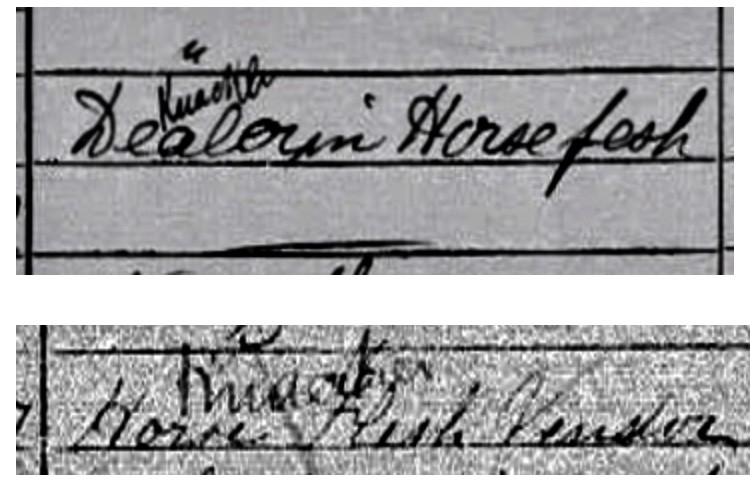 Knacker
Dealer in Horse fesh
Knacker
Horse Flesh Vendor